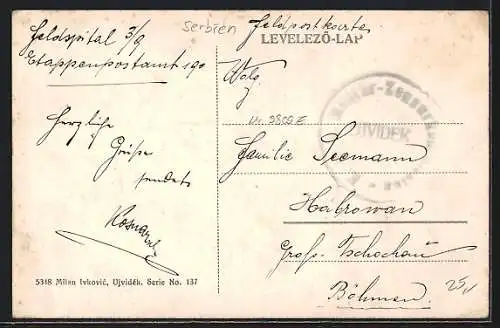 Serbien
Feldpostkarte
LEVELEZŐ-LAP
Feldspital 3/9
Etappenpostamt 190
Herzliche
Grüße
sendet
Wolg.
Familie Seemann
Habrowan
Groß Tschochau
Böhmen.
ÚJVIDÉK
25,-
5318 Milan Ivković, Ujvidék. Serie No. 137